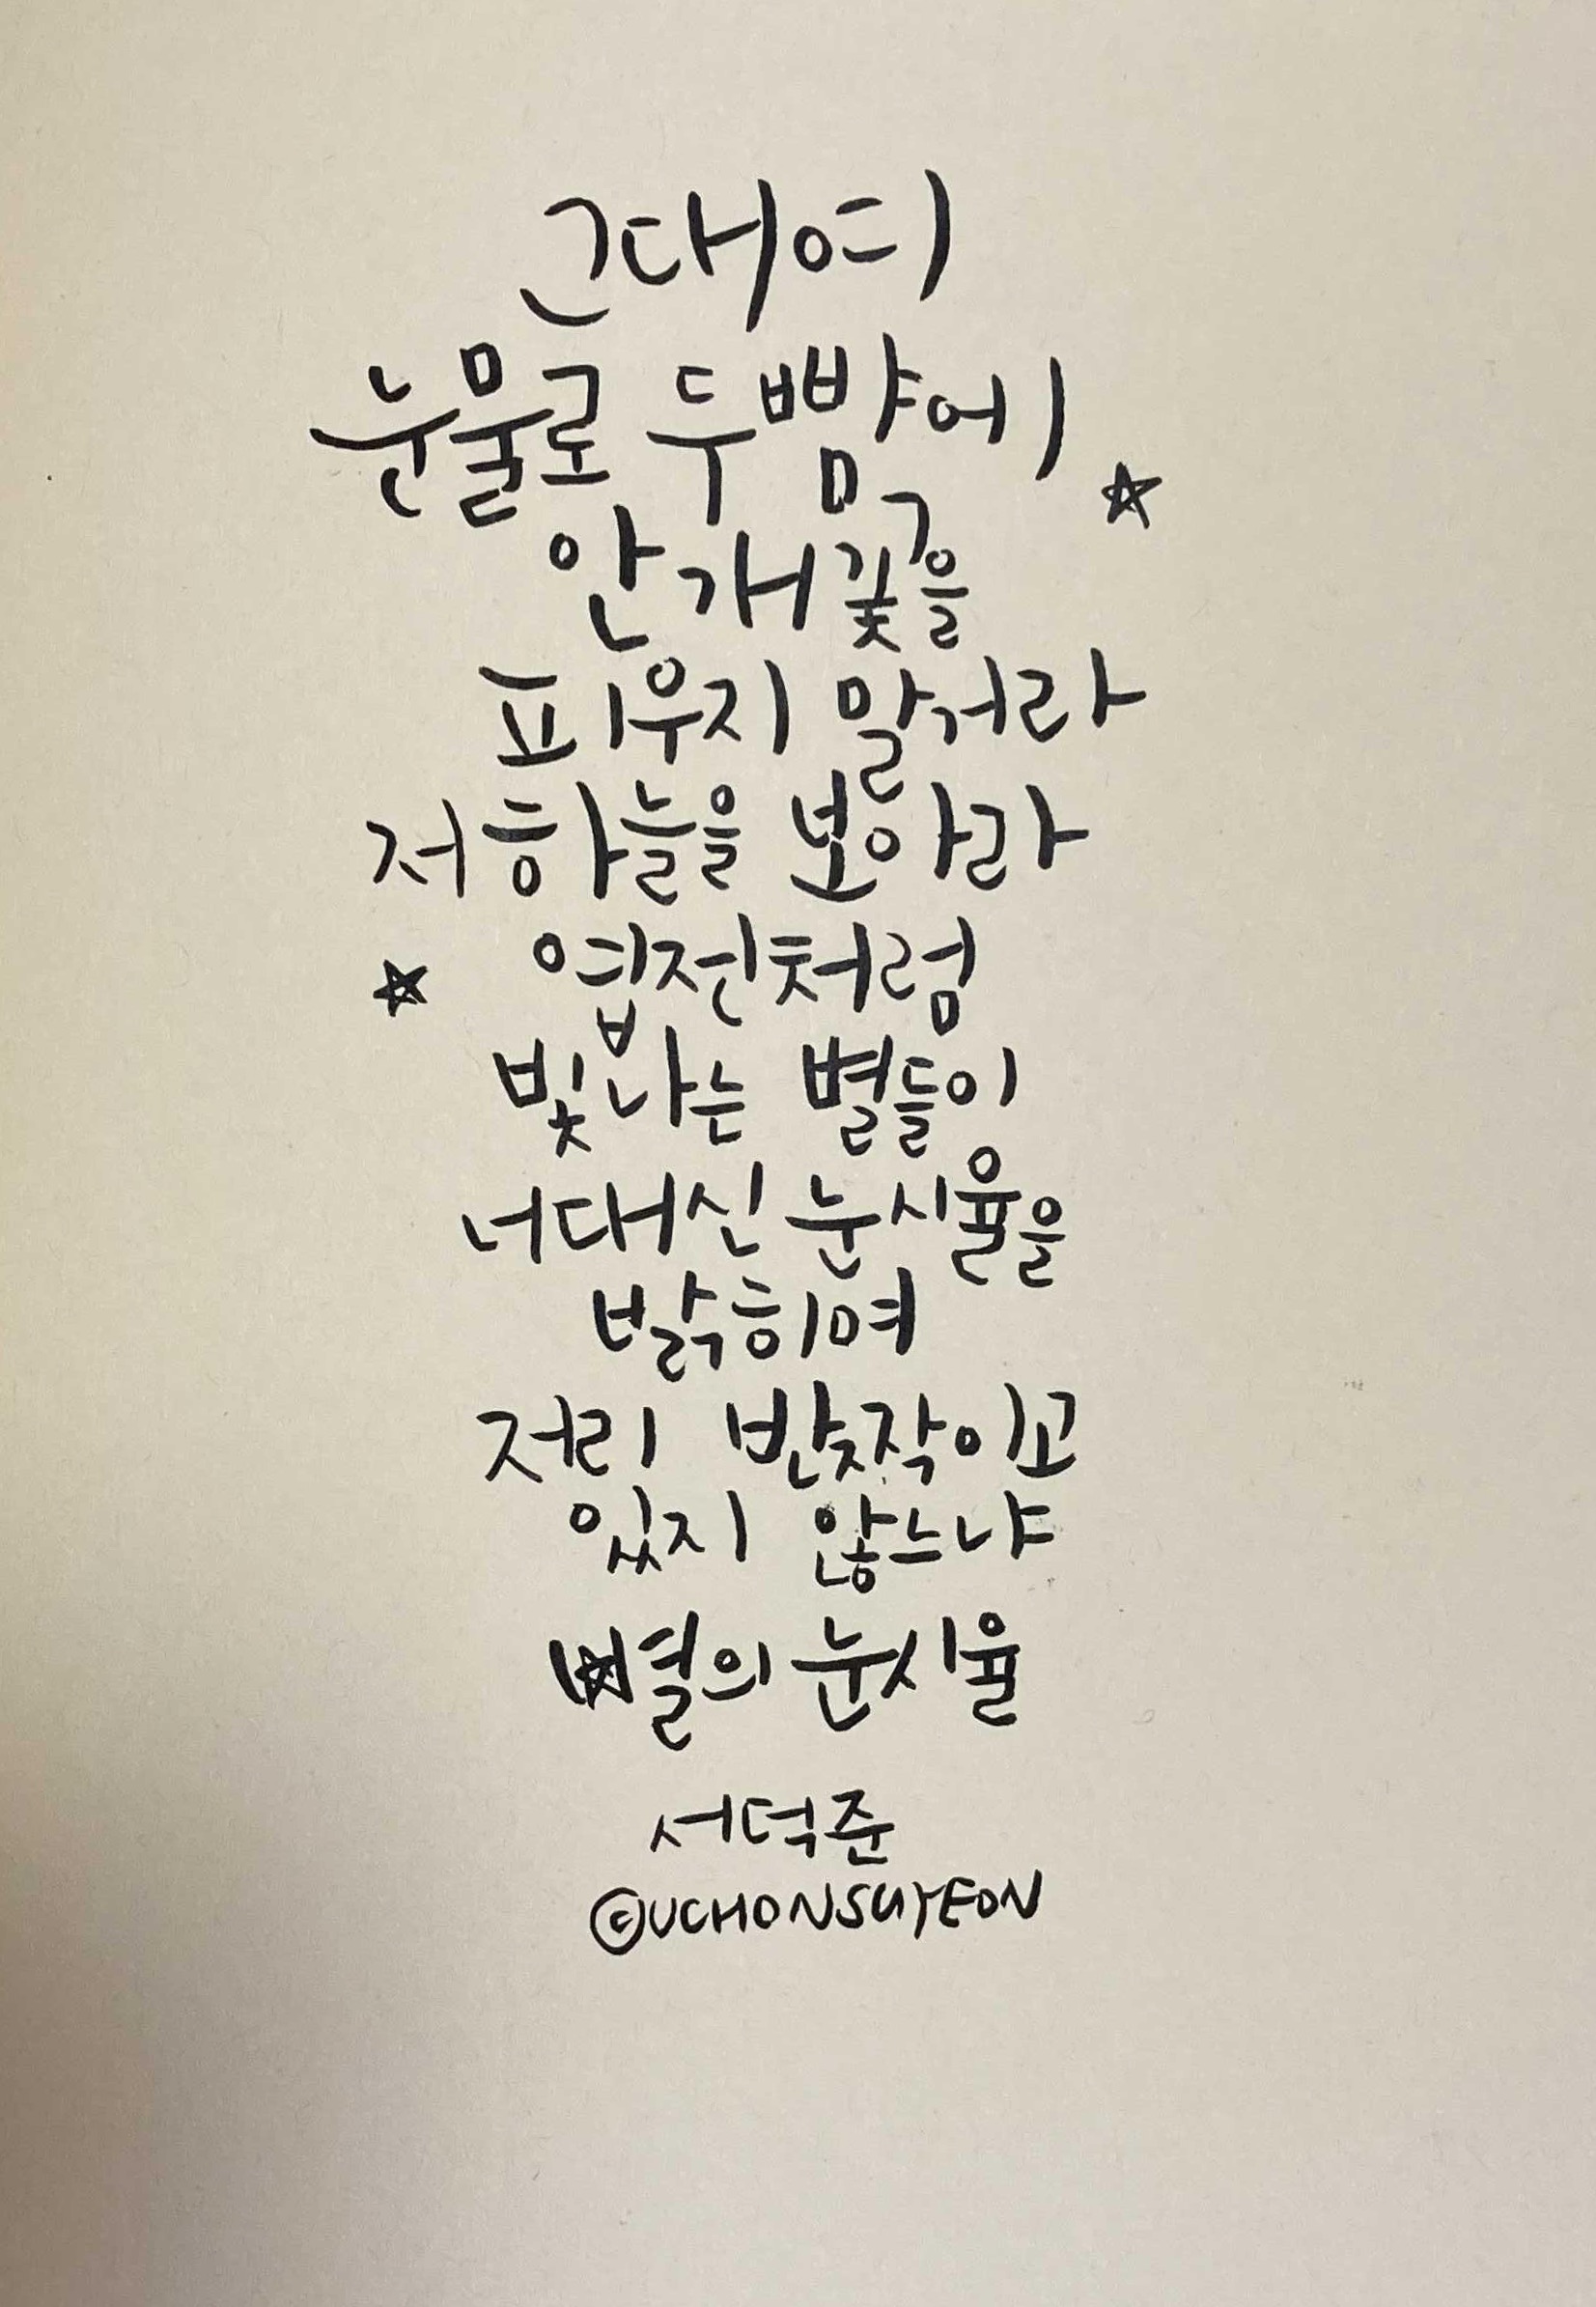 그대여
눈물로 두 뺨에
안개꽃을
피우지 말거라
저 하늘을 보아라
엽전처럼
빛나는 별들이
너 대신 눈시율을
밝히며
저리 반짝이고
있지 않느냐
별의 눈시율
서덕준
©UCHONSUYEON